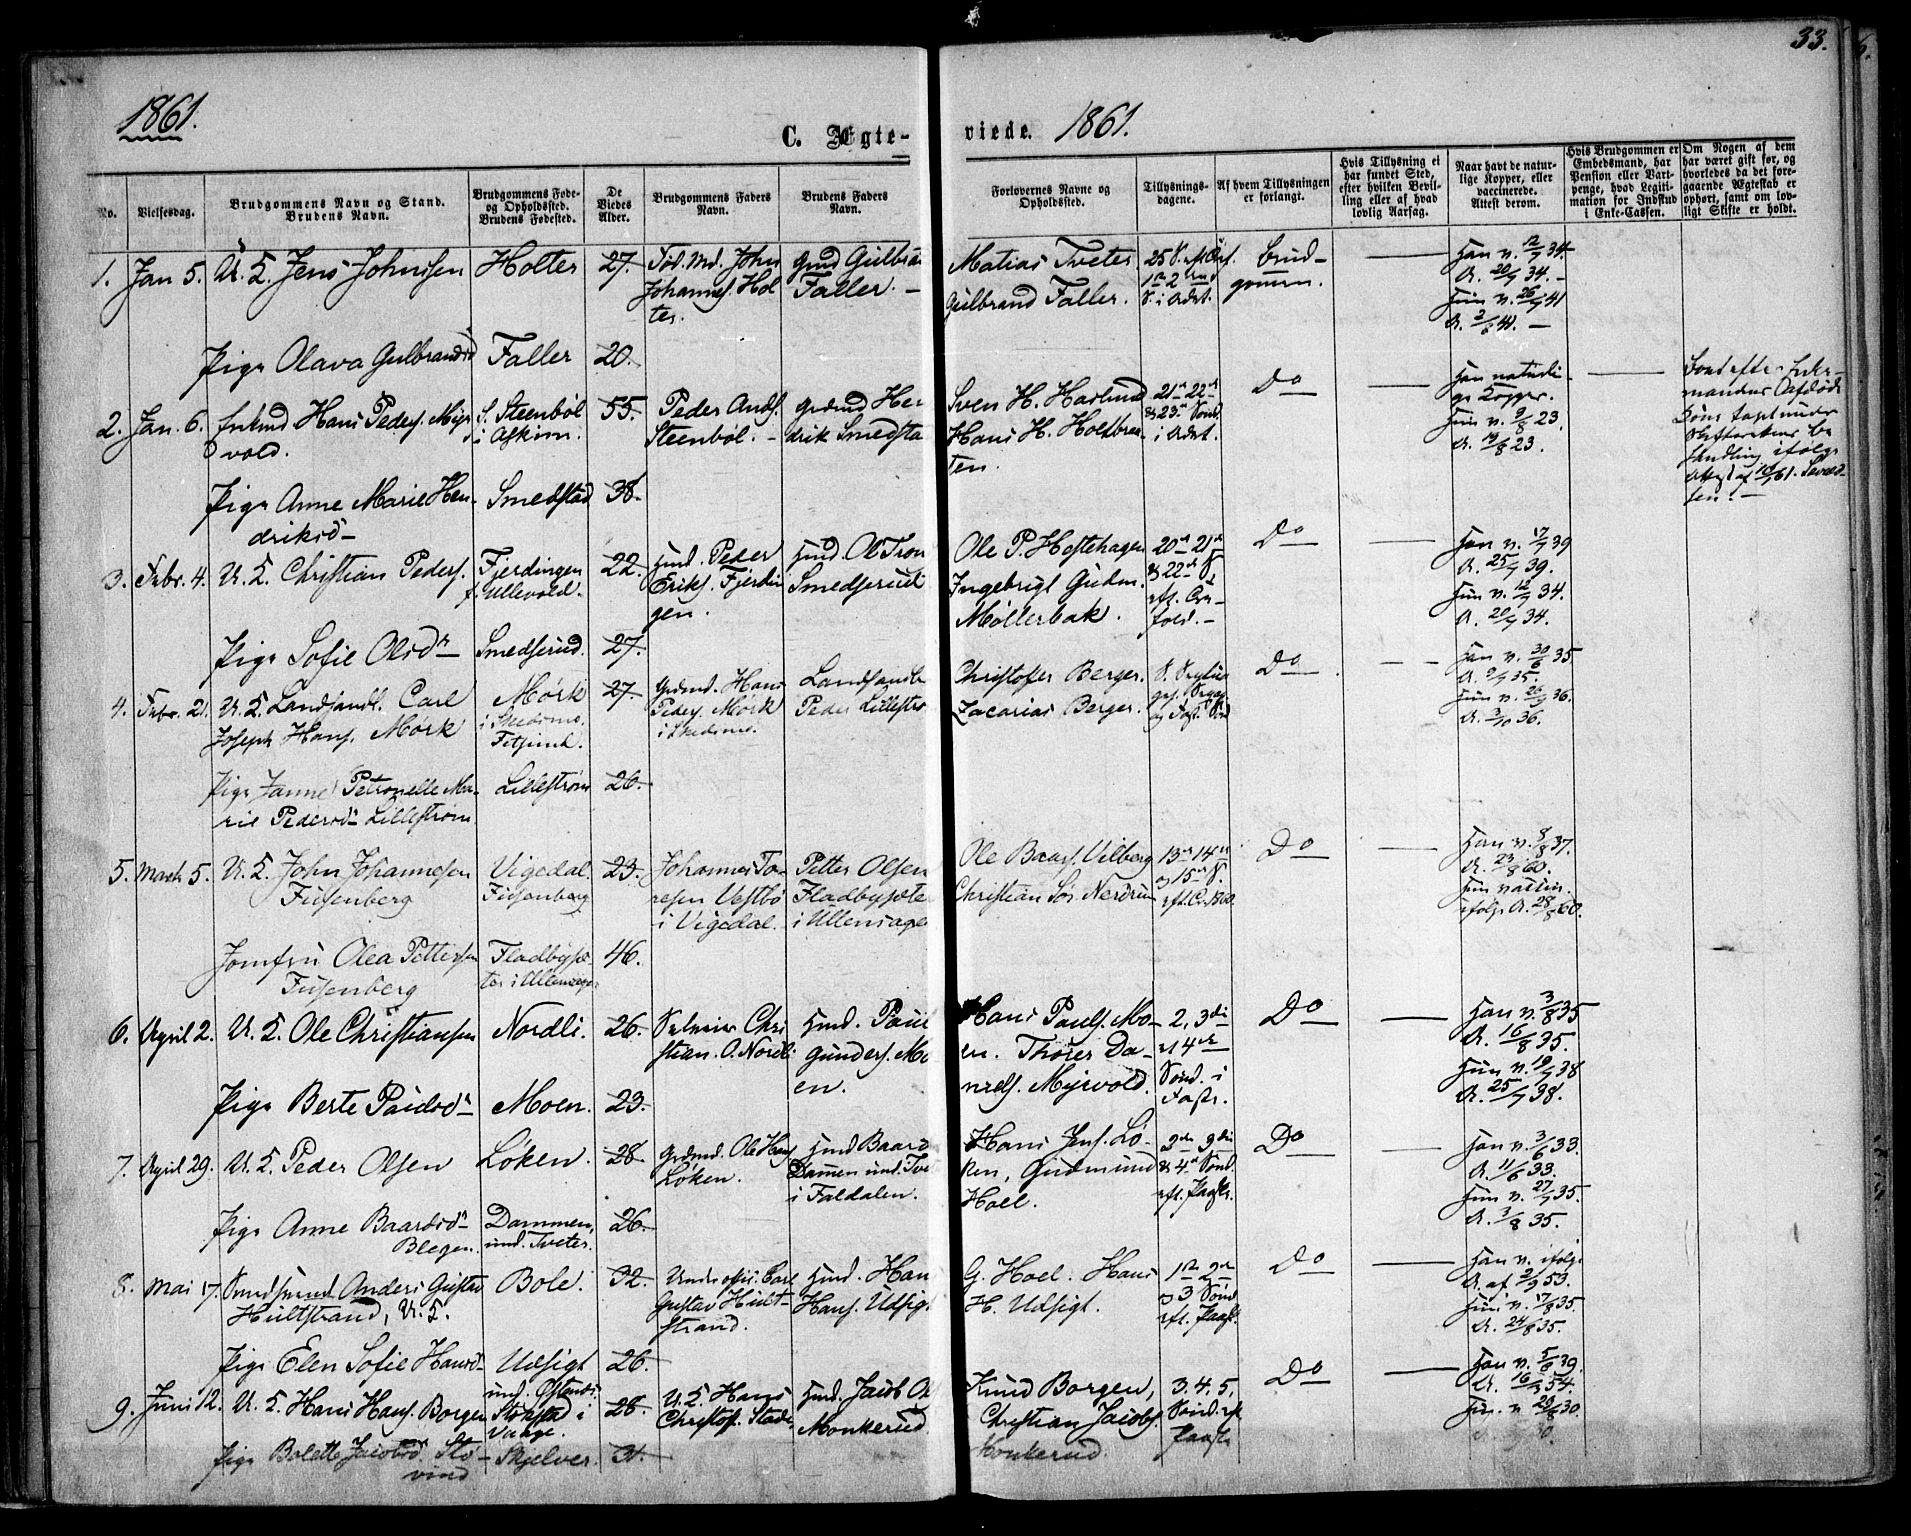 33.
1861.
C. Ægte-
viede. 1861.
No.
Vielsesdag.
Brudgommens Navn og Stand.
Brudens Navn.
Brudgommens Føde-
og Opholdssted.
Brudens Fødested.
De
Viedes
Alder.
Brudgommens Faders
Navn.
Brudens Faders
Navn.
Forlovernes Navne og
Opholdssted.
Tillysnings-
dagene.
Af hvem Tillysningen
er forlangt.
Hvis Tillysning ei
har fundet Sted,
efter hvilken Bevil-
ling eller af hvad
lovlig Aarsag.
Naar havt de natur-
lige Kopper, eller
vaccinerede.
Attest derom.
Hvis Brudgommen er
Embedsmand, har
Pension eller Vart-
penge, hvad Legiti-
mation for Indskud
i Enke-Cassen.
Om Nogen af dem
har været gift før, og
hvorledes da det fore-
gaaende Ægteskab er
ophørt, samt om lov-
ligt Skifte er holdt.
1. Jan 5. U. K. Jens Johnsen
Holter
27.
John
Johannes. Hol
ter.
Gmd Gulbra
Faller. —
Matias Tveter.
Gulbrand Faller.
Brud-
gommen.
Han v. 12/7 34.
A. 20/7 34. —
Hun v. 26/7 41
A. 3/8 41. —
Pige Olava Gulbrandsd
Faller
20.
2. Jan. 6. Enkmd Hans Peders. Myr
vold.
S. Steenbøl
i Askim.
55.
Peder Ands.
Steenbøl. —
Grdmd Hen
drik Smedsta
Sven H. Haslund
Hans H. Holtbra-
ten.
21de 22de
& 23de Sønd.
i Adet.
Do
Han naturli-
ge Kopper.
Hun v. 9/8 23.
A. 19/8 23.
Pige Anne Marie Hen-
driksd
Smedstad
38.
3. Febr. 4. U. K. Christian Peders.
Fjerdingen
f. Ullevold.
22.
Hmd. Peder
Eriks. Fjerdin
gen.
Hmd. Ol Tron
Smedserud
Ole P. Hestehagen
Ingebrigt Gudm.
Møllerbak.
20de 21de
& 22de S
eft. Tre-
fold. —
Do
Han v. 17/7 39
A. 25/7 39.
Hun v. 12/7 34.
A. 20/7 34.
Pige Sofie Olsdr
Smedserud.
27.
4. Febr. 21. U. K. Landhandl. Carl
Joseph Hans. Mørk
Mørk
i Skedsmo.
27.
Grdmd. Hans
Peders. Mørk
i Skedsmo.
Landhandl
Peder Lillestrø
Christofer Berger.
Zacarias Berger.
Do
Han v. 30/6 35.
A. 9/7 35.
Hun v. 26/9 36.
A. 3/10 36.
Pige Janne Petronelle Ma-
rie Pedersdr Lillestrøm
Lillestrøm
26.
5. Marts 5. U. K. John Johannesen
Fusenberg
Vigedal.
Fusenberg
23.
Johannes To-
resen Vestbø
i Vigedal.
Petter Olsen
Fladbysæte
i Ullensage
Ole Baars. Vilberg
Christian Sør. Nerdrum
13de 14de
og 15de S.
Do
Han v. 8/8 37.
A. 23/8 60.
Hun vaccin.
ifølge A. 28/8 60.
Jomfru Olea Pettersen
Fusenberg
Fladbysæ-
ter i Ullensager
46.
6. April 2. U. K. Ole Christiansen
Nordli.
26.
Selveier Chri
stian. O. Nordli.
Hmd. Paul
Gunders. Mo
en.
Hans Pauls. Mo-
en. Thorer Da-
niels. Myrvold.
2, 3die
og 4de
Sønd. i
Faste.
Do
Han v. 3/8 35
A. 16/8 35.
Hun v. 19/7 38
A. 25/7 38.
Pige Berte Paulsdr
Moen.
23.
7. April 29. U. K. Peder Olsen
Løken.
28.
Grdmd. Ole Hans
Løken.
Hmd Baard
Dammen und. Tve
i Faldalen.
Hans Jens. Lø-
ken, Gudmund
Hoel.
2den 3die
& 4de Sønd.
eft. Paaske.
Do
Han v. 3/6 33.
A. 11/6 33.
Hun v. 27/7 35.
A. 3/8 35.
Pige Anne Baardsdr
Blegen.
Dammen,
und. Tveter.
26.
8. Mai 17. Anders Gustav
Hultstrand, U. K.
Bole.
32.
Underoffis. Carl
Gustav Hult-
strand.
Hmd. Han
Hans. Udsigt
G. Hoel. Hans
H. Udsigt.
1ste 2den
og 3 Sønd.
eft. Paaske.
Do
Han v. ifølge
A. af 2/9 53.
Hun v. 17/8 35.
A. 24/8 35.
Pige Elen Sofie Hansd
Udsigt
26.
9. Juni 12. U. K. Hans Hans. Borgen
Stokstad i
Vaage.
28.
U. K. Hans
Christof. Stade
Hmd. Jacob O
Monkerud
Knud Borgen,
Christian Jacobs.
Monkerud
3. 4. 5.
Sønd. eft
Paaske
Do
Han v. 5/6 39.
A. 16/7 54.
Hun v. 20/8 30.
Pige Bolette Jacobsdr Stø-
vind
Skjelver.
31.